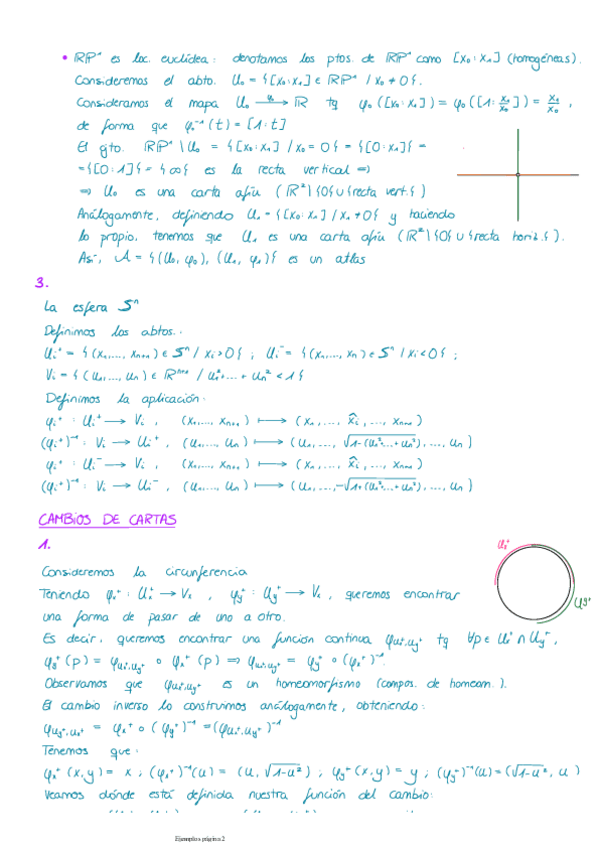 • RP¹ es loc. euclídea: denotamos los ptos. de RP¹ como [x₀:x₁] (homogéneas).
Consideremos el abto. U₀ = {[x₀:x₁] ∈ RP¹ / x₀ ≠ 0}.
Consideramos el mapa U₀ —φ₀→ R tq φ₀([x₀:x₁]) = φ₀([1:x₁/x₀]) = x₁/x₀,
de forma que φ₀⁻¹(t) = [1:t]
El cjto. RP¹\U₀ = {[x₀:x₁] / x₀ = 0} = {[0:x₁]} =
= {[0:1]} = {∞} es la recta vertical ⇒
⇒ U₀ es una carta afín (R²\{0}∪{recta vert.})
Análogamente, definiendo U₁ = {[x₀:x₁] / x₁ ≠ 0} y haciendo
lo propio, tenemos que U₁ es una carta afín (R²\{0}∪{recta horiz.}).
Así, A = {(U₀, φ₀), (U₁, φ₁)} es un atlas
3.
La esfera Sⁿ
Definimos los abtos.:
Uᵢ⁺ = {(x₁,..., xₙ₊₁) ∈ Sⁿ / xᵢ > 0} ; Uᵢ⁻ = {(x₁,..., xₙ) ∈ Sⁿ / xᵢ < 0} ;
Vᵢ = {(u₁,..., uₙ) ∈ Rⁿ⁺¹ / u₁²+...+ uₙ² < 1}
Definimos la aplicación:
φᵢ⁺ : Uᵢ⁺ → Vᵢ , (x₁,..., xₙ₊₁) ↦ (x₁,..., x̂ᵢ,..., xₙ₊₁)
(φᵢ⁺)⁻¹ : Vᵢ → Uᵢ⁺ , (u₁,..., uₙ) ↦ (u₁,..., √1-(u₁²...+uₙ²),..., uₙ)
φᵢ⁺ : Uᵢ⁻ → Vᵢ , (x₁,..., xₙ₊₁) ↦ (x₁,..., x̂ᵢ,..., xₙ₊₁)
(φᵢ⁺)⁻¹ : Vᵢ → Uᵢ⁻ , (u₁,..., uₙ) ↦ (u₁,..., -√1+(u₁²...+uₙ²),..., uₙ)
CAMBIOS DE CARTAS
1.
Uₓ⁺
Consideremos la circunferencia
Teniendo φₓ⁺ : Uₓ⁺ → Vₓ , φy⁺ : Uy⁺ → Vₓ , queremos encontrar
Uy⁺
una forma de pasar de uno a otro.
Es decir, queremos encontrar una función continua φUₓ⁺,Uy⁺ tq ∀p ∈ Uₓ⁺ ∩ Uy⁺,
φy⁺(p) = φUₓ⁺,Uy⁺ ∘ φₓ⁺(p) ⇒ φUₓ⁺,Uy⁺ = φy⁺ ∘ (φₓ⁺)⁻¹.
Observamos que φUₓ⁺,Uy⁺ es un homeomorfismo (compos. de homeom.).
El cambio inverso lo construimos análogamente, obteniendo:
φUy⁺,Uₓ⁺ = φₓ⁺ ∘ (φy⁺)⁻¹ = (φUₓ⁺,Uy⁺)⁻¹
Tenemos que:
φₓ⁺(x,y) = x ; (φₓ⁺)⁻¹(u) = (u, √1-u²) ; φy⁺(x,y) = y ; (φy⁺)⁻¹(u) = (√1-u², u)
Veamos dónde está definida nuestra función del cambio:
Ejemplos página 2